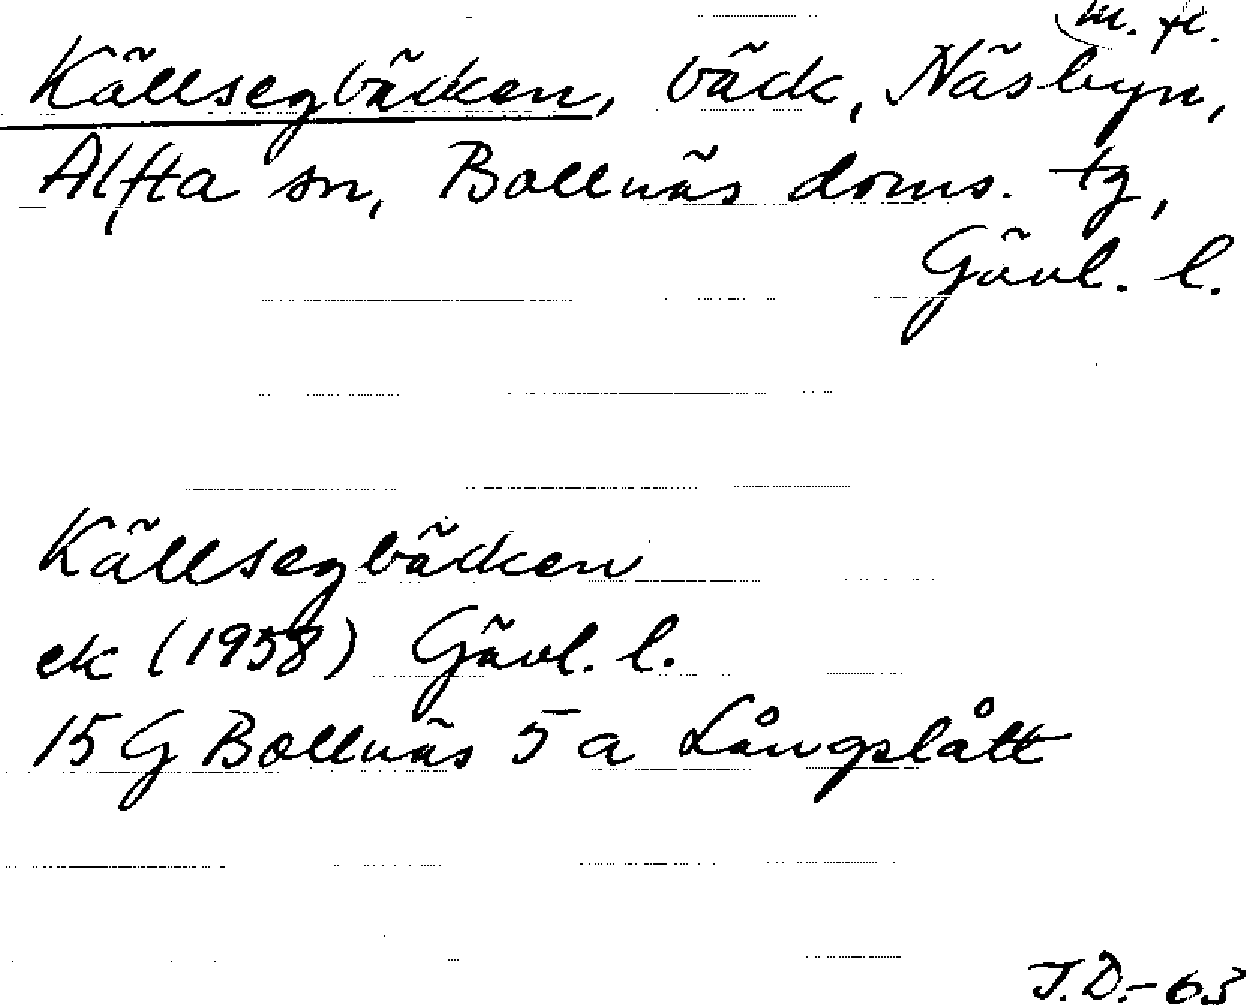 m. fl.
Källsegbäcken, bäck, Näsbyn,
Alfta sn, Bollnäs doms. tg,
Gävl. l.
Källsegbäcken
ek (1958) Gävl. l.
15 G Bollnäs 5 a Långslått
J.D.-63